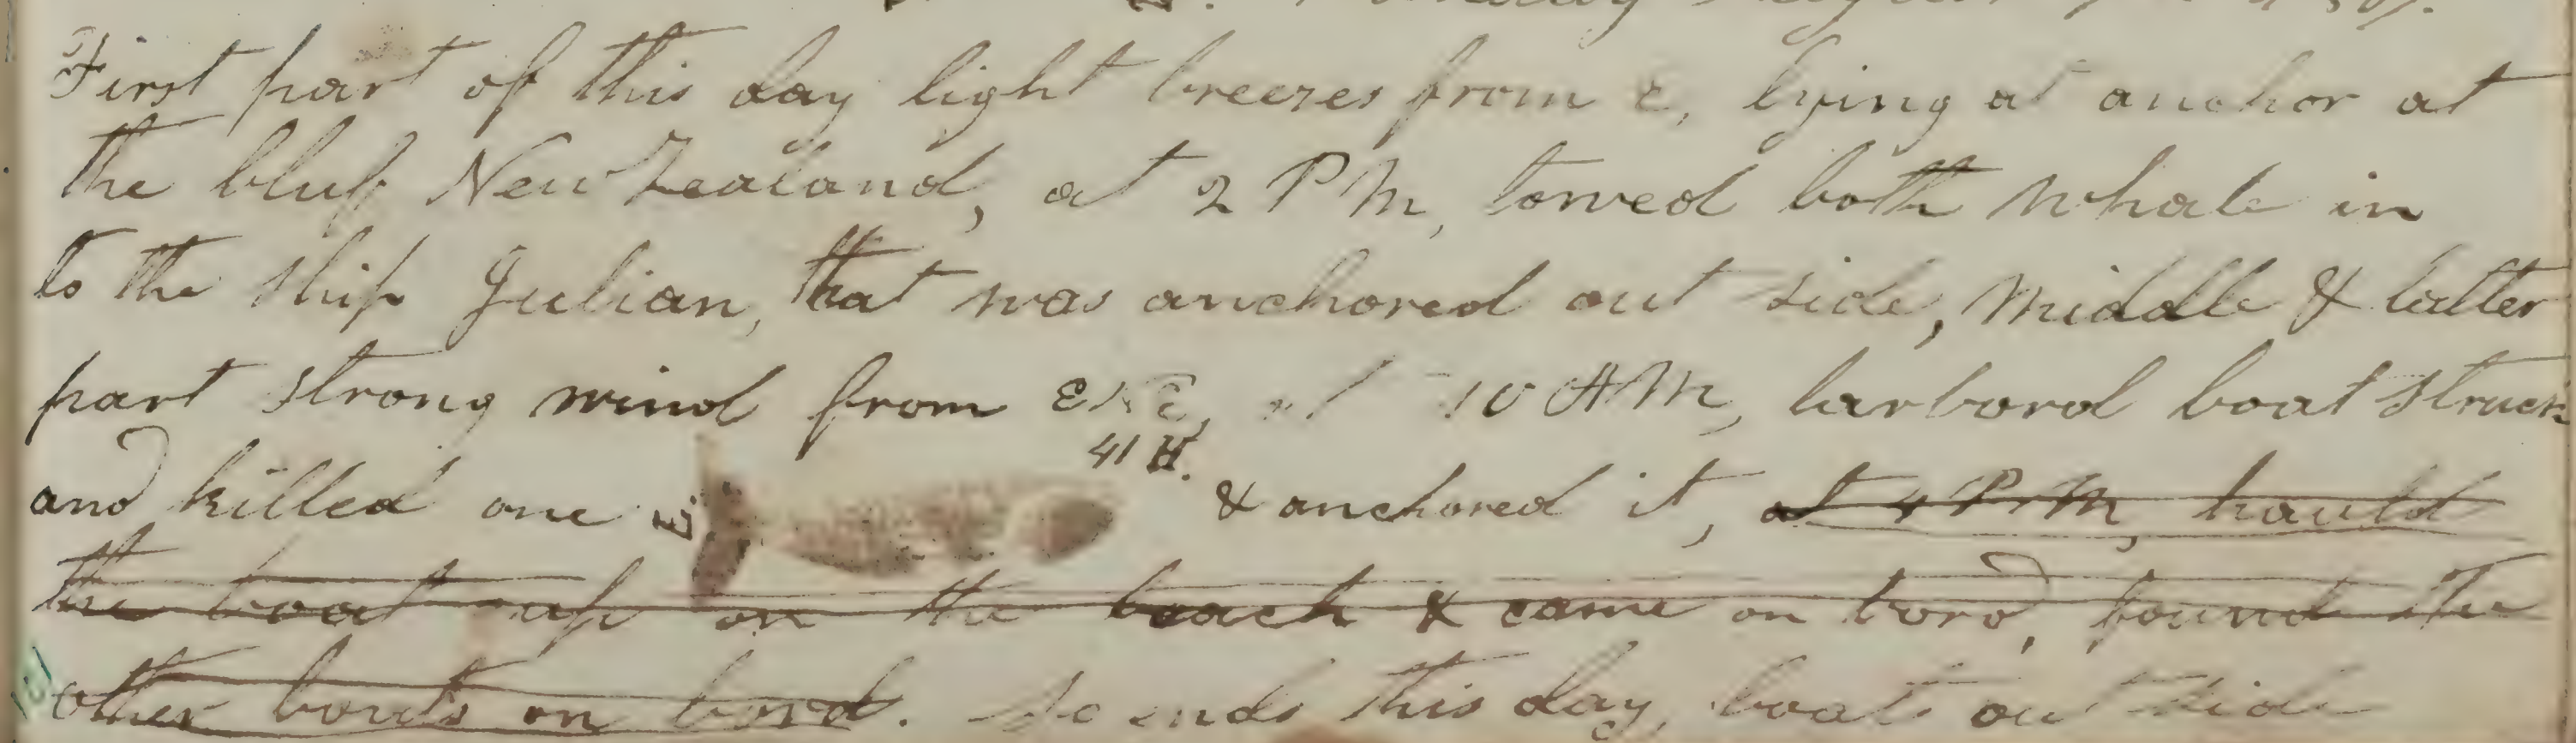 First part of this day light breezes from E, lying at anchor at
the bluff New Zealand, at 2 PM, towed both whale in
to the ship Julian, that was anchored out side, Middle & latter
part strong wind from ENE, at 10 AM, larbord boat struck
41 H.
and killed one E. & anchored it, at 4 PM, hauld
the boat up on the beach & came on bord, found the
other boats on bord. So ends this day, boats out side